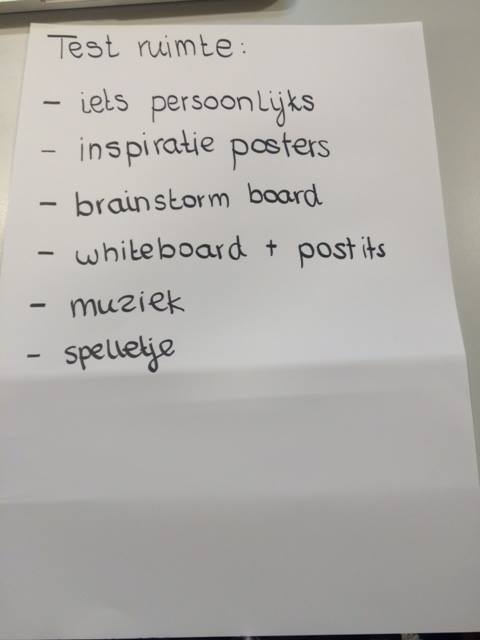 Test ruimte:
- iets persoonlijks
- inspiratie posters
- brainstorm board
- whiteboard + postits
- muziek
- spelletje